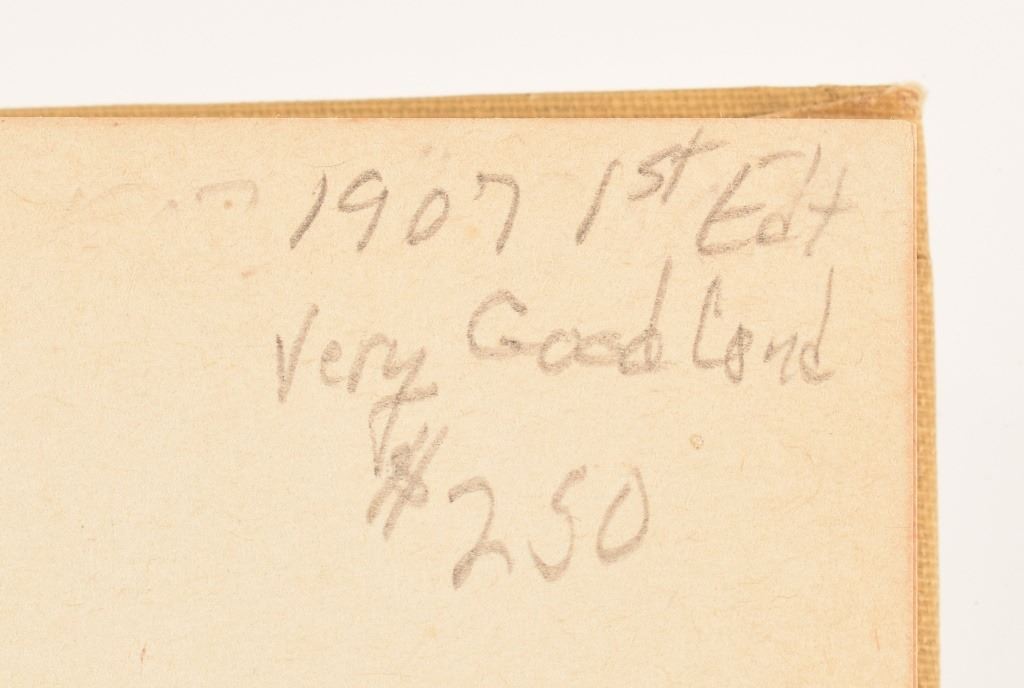 1907 1st Edt
Very Good Cond
$250